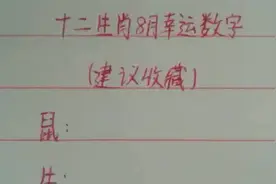 十二生肖8月幸运数字
(建议收藏)
鼠:
牛: